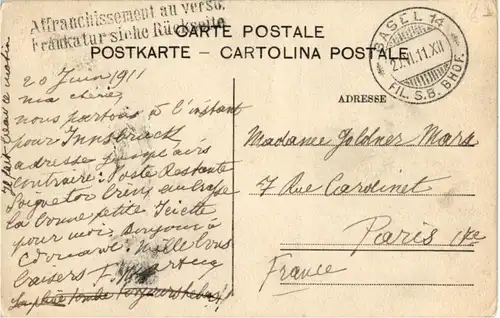 Affranchissement au verso.
Frankatur siehe Rückseite
CARTE POSTALE
POSTKARTE - CARTOLINA POSTALE
BASEL 14
20.VI.11.XII
FIL. S.B. BHOF.
ADRESSE
20 Juin 1911
ma chérie,
nous partons à l'instant
pour Innsbruck
adresse jusqu'à avis
Contraire: Poste Restante
la bonne petite
pour moi, bonjour à
Edouard. Mille bons
baisers
Il fait beau ce matin
Madame Goldner Marx
7 Rue Cardinet
Paris 17e
France